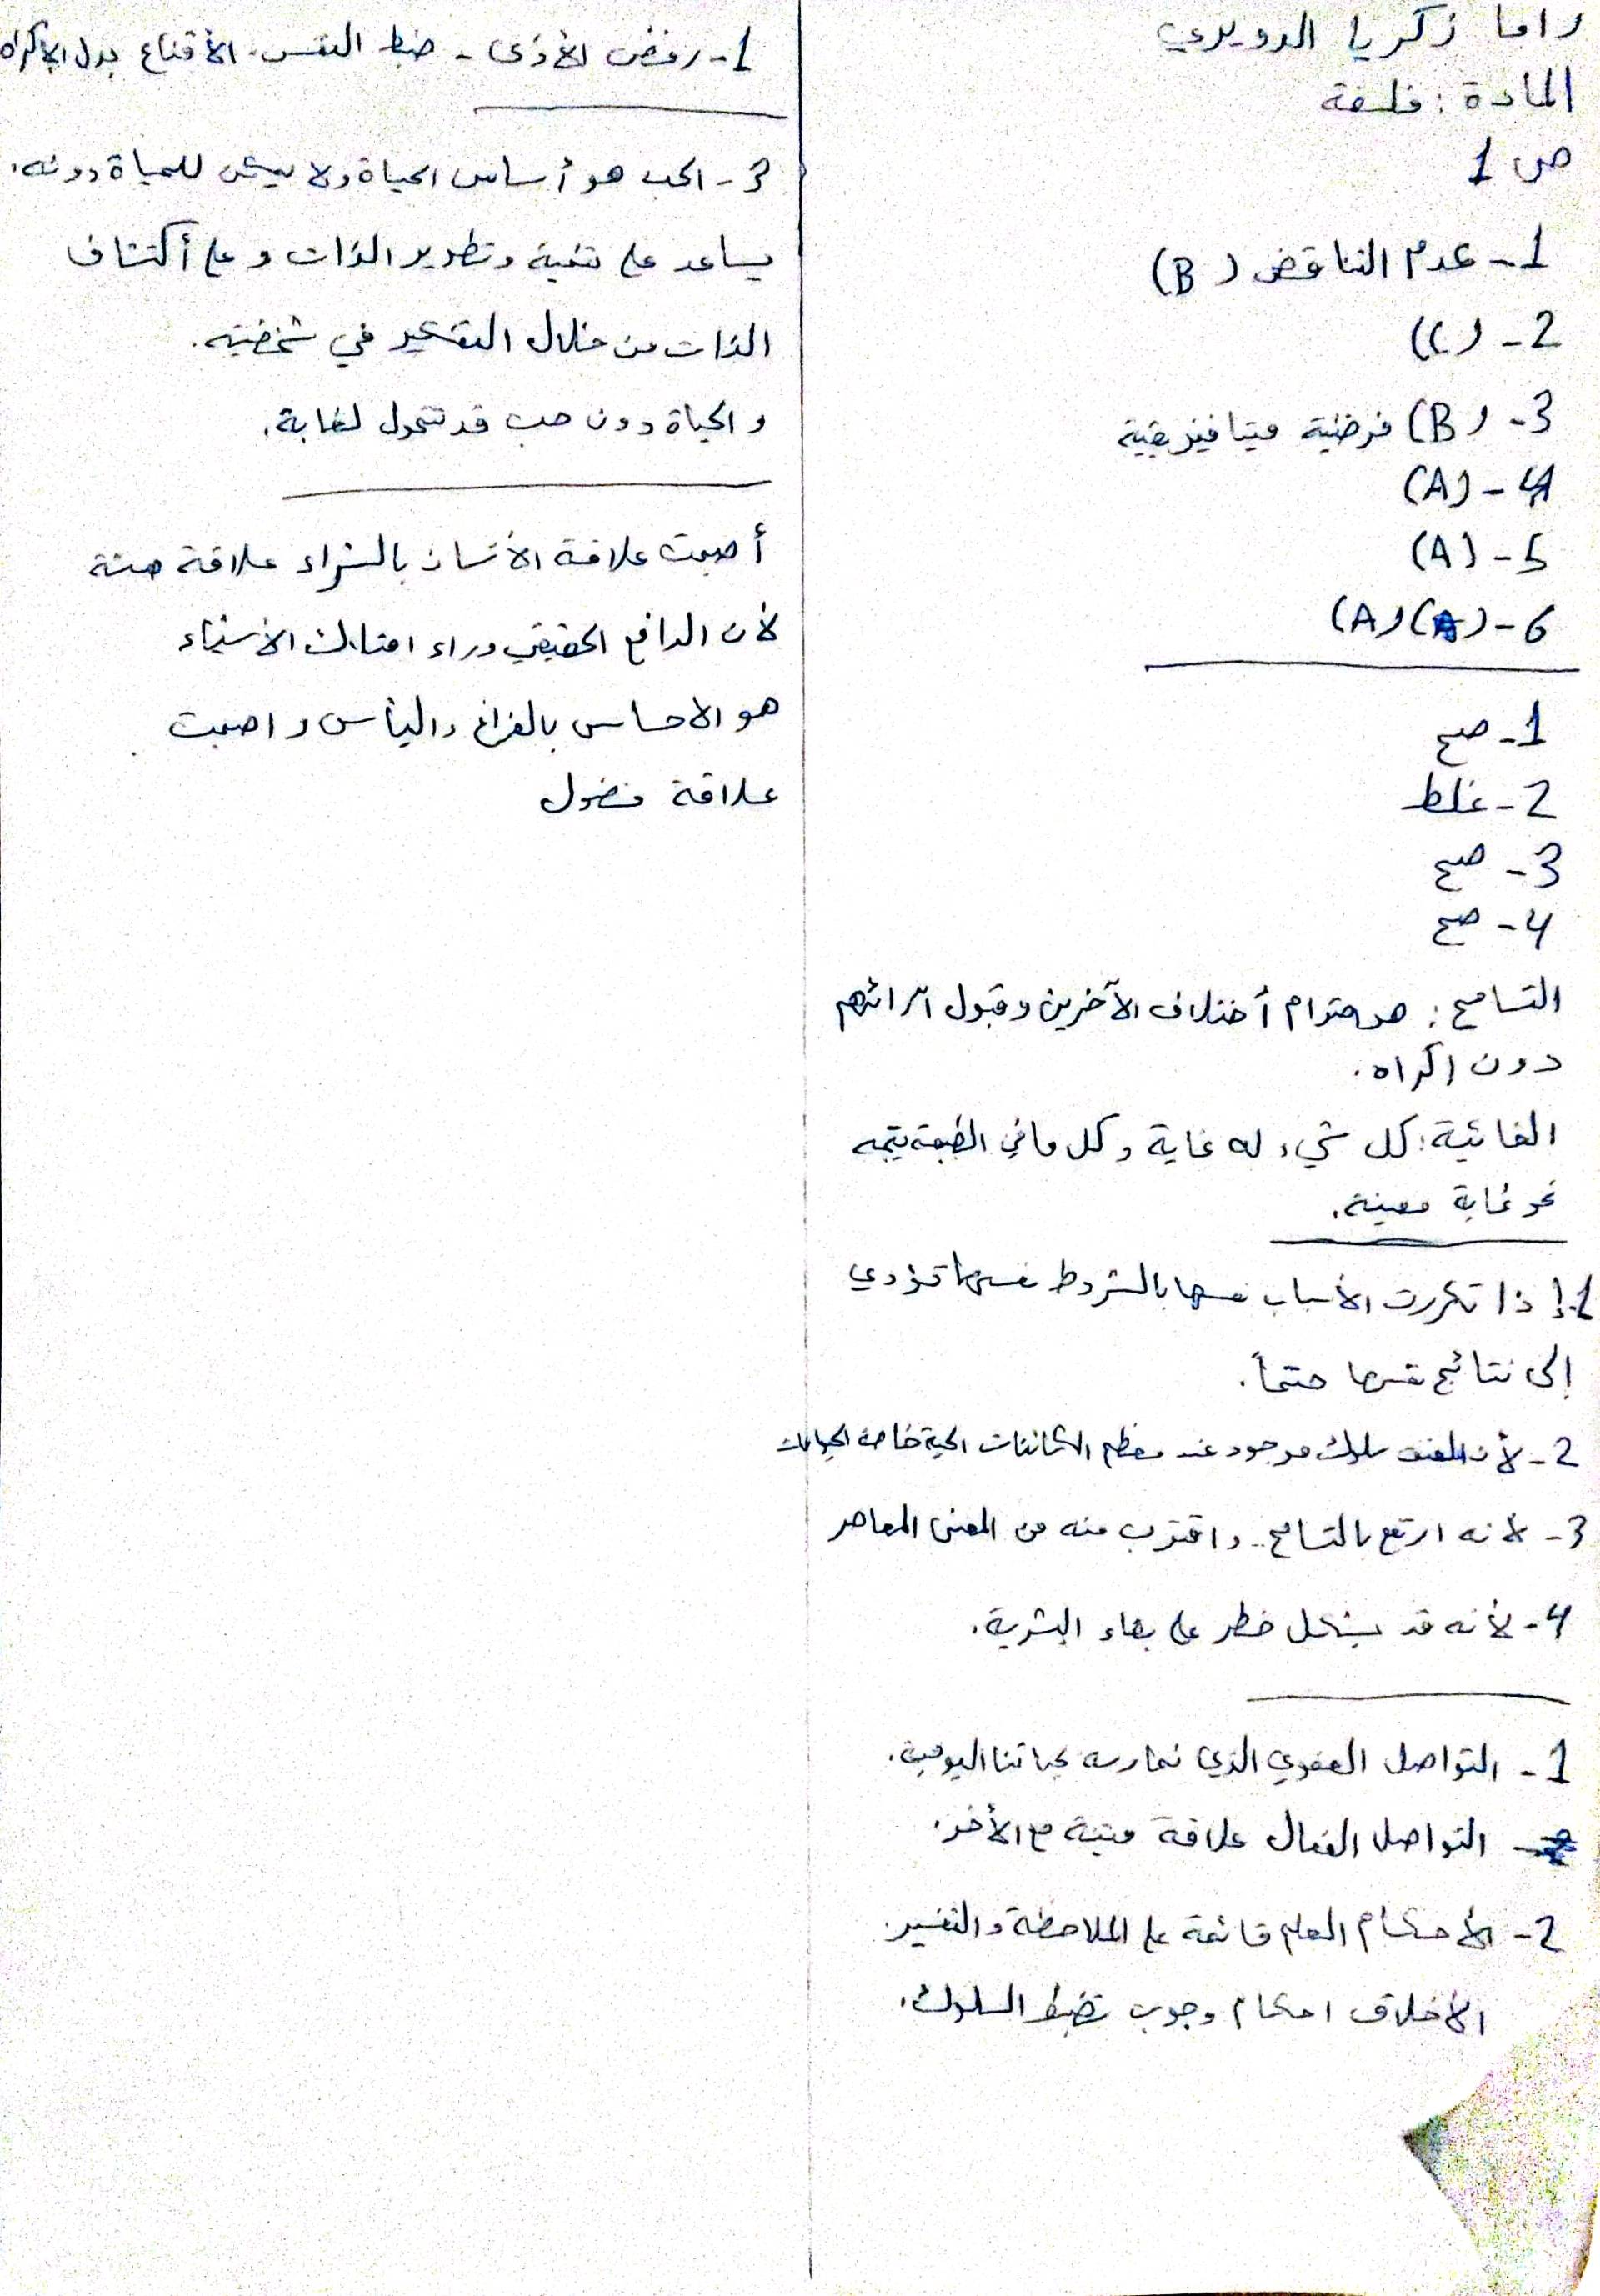 راما زكريا الدويري
المادة : فلسفة
ص 1
1- عدم التناقض (B)
2- (C)
3- (B) فرضية ميتافيزيقية
4- (A)
5- (A)
6- (A) (A)
1- صح
2- غلط
3- صح
4- صح
التسامح : هو احترام أختلاف الآخرين وقبول آرائهم
دون إكراه .
الغائية : كل شيء له غاية وكل ما في الطبيعة يتجه
نحو غاية معينة .
1. إذا تكررت الأسباب نفسها بالشروط نفسها تؤدي
إلى نتائج نفسها حتماً .
2- لأن العنف سلوك موجود عند معظم الكائنات الحية خاصة الحيوانات
3- لانه ارتقى بالتسامح .. واقترب منه من المعنى المعاصر
4- لأنه قد يشكل خطر على بقاء البشرية .
1- التواصل العفوي الذي نمارسه بحياتنا اليومية .
- التواصل الفعال علاقة مبنية مع الأخر .
2- الأحكام العلم قائمة على الملاحظة والتفسير .
الأخلاق احكام وجوب تضبط السلوك .
1- رفض الأذى - ضبط النفس - الأقناع بدل الإكراه
3- الحب هو أساس الحياة ولا يمكن للحياة دونه .
يساعد على تنمية وتطوير الذات وعلى أكتشاف
الذات من خلال التفكير في شخصيته .
والحياة دون حب قد تتحول لغابة .
أصبحت علاقة الأنسان بالشراء علاقة هشة
لأن الدافع الحقيقي وراء امتلاك الأشياء
هو الاحساس بالفراغ واليأس واصبحت
علاقة فضول